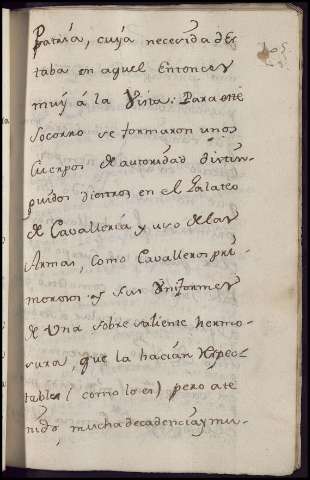 Patria, cuya necesida des
taba en aquel entonces
muy á la Vista: Para este
Socorro se formaron unos
Cuerpos de autoridad distin-
guidos diestros en el Galateo
de Cavalleria y uso de las
Armas, como Cavalleros pri
morosos y sus Vniformes
de Una sobre saliente hermo-
sura, que la hacian respec
table (como lo es) pero a te
nido, mucha decadencia y mu-